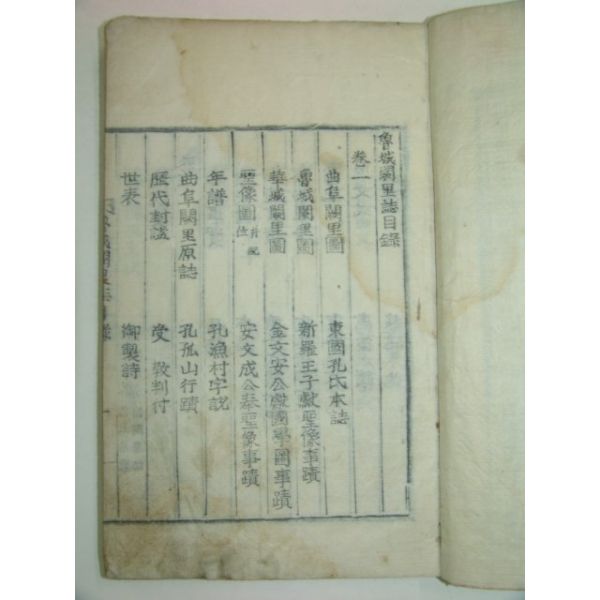 魯城闕里誌目錄
卷一
曲阜闕里圖 東國孔氏本誌
魯城闕里圖 新羅王子獻聖像事蹟
華城闕里圖 金文安公獻國學圖事蹟
聖像圖 安文成公奉聖像事蹟
年譜 孔漁村字說
曲阜闕里原誌 孔孤山行蹟
歷代封謚 受教判付
世表 御製詩